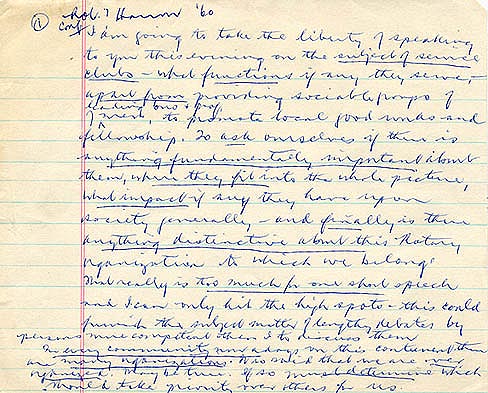 ① Rot. Harrow '60
conf
I am going to take the liberty of speaking
to you this evening on the subject of service
clubs - what functions if any they serve, -
apart from providing sociable groups of
leading bus & prof.
men, to promote local good works and
fellowship. To ask ourselves if there is
anything fundamentally important about
them, where they fit into the whole picture,
what impact if any they have upon
society generally - and finally is there
anything distinctive about this Rotary
organization to which we belong?
That really is too much for one short speech
and I can only hit the high spots - this could
furnish the subject matter of lengthy debates by
persons more competent than I to discuss them
In every community nowadays on this continent there
are many organizations. Who said that we are over
organized. May be true. If so must determine which
should take priority over others for us.